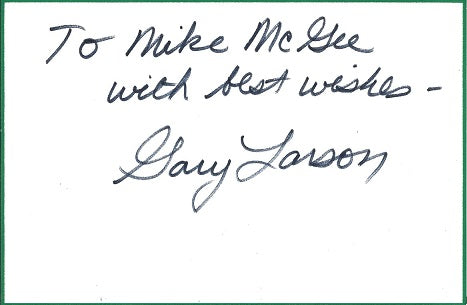 To Mike McGee
with best wishes -
Gary Larson